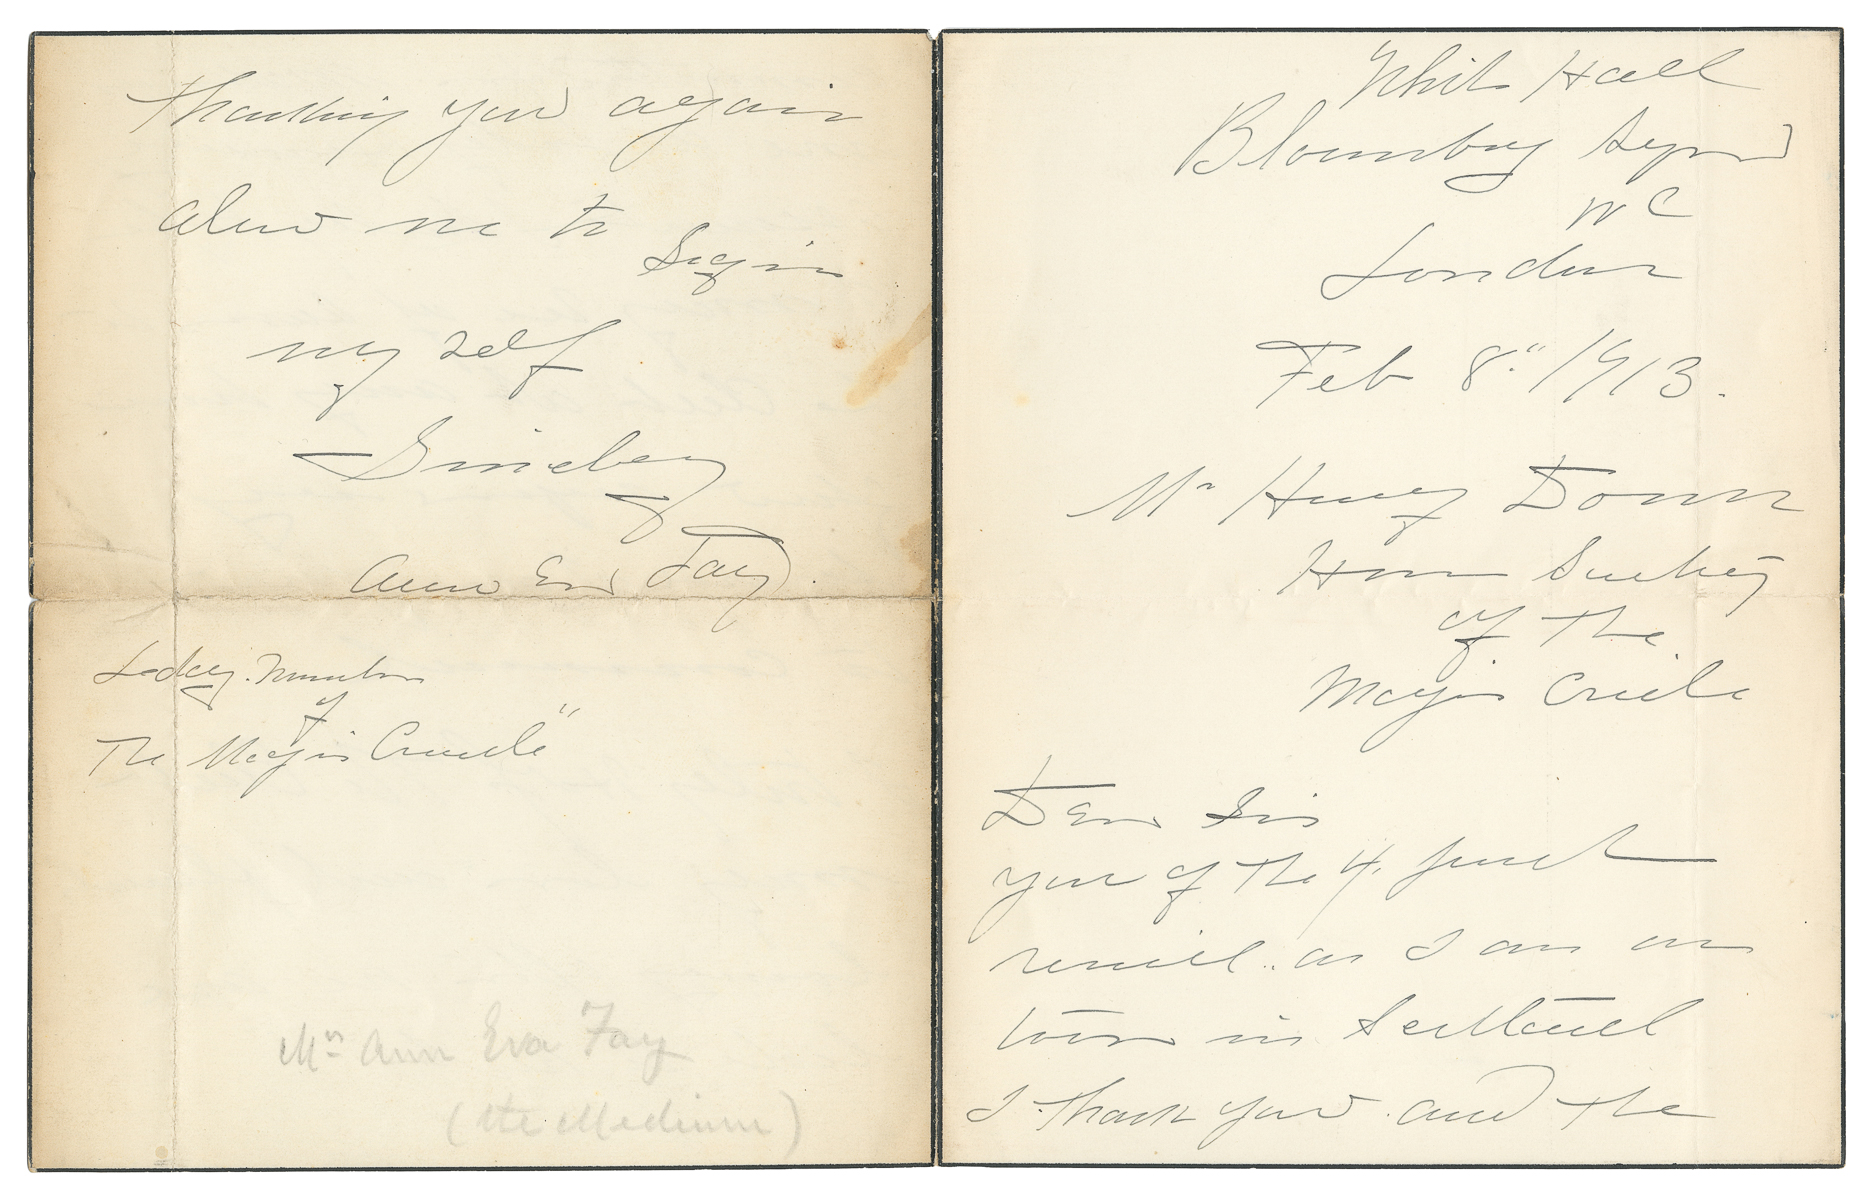 White Hall
Bloomsbury Sqr
W C
London
Feb 8" 1913.
Mr Henry Donn
Hon Sectety
of the
Magic Circle
Dear Sir
your of the 4. just
recied.. as I am on
tour in Scotland
I thank you and the
thanking you again
alow me to
Sigin
my self
Sincley
Anna Eva Fay.
Ladey. Member
of
The Magic Circle"
Mrs Ann Eva Fay
(the Medium)